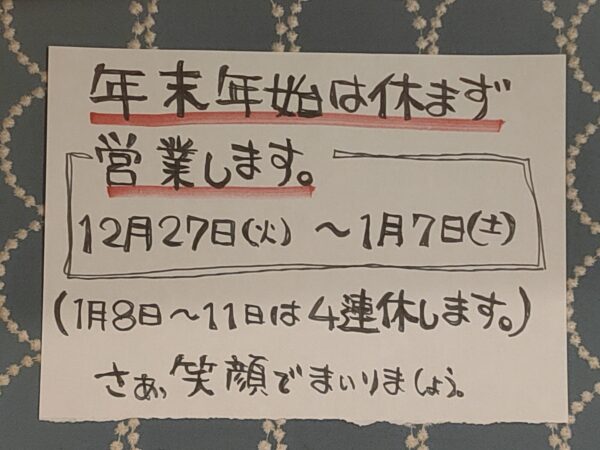 年末年始は休まず
営業します。
12月27日(火) 〜1月7日(土)
(1月8日〜11日は4連休します。)
さぁ、笑顔でまいりましょう。